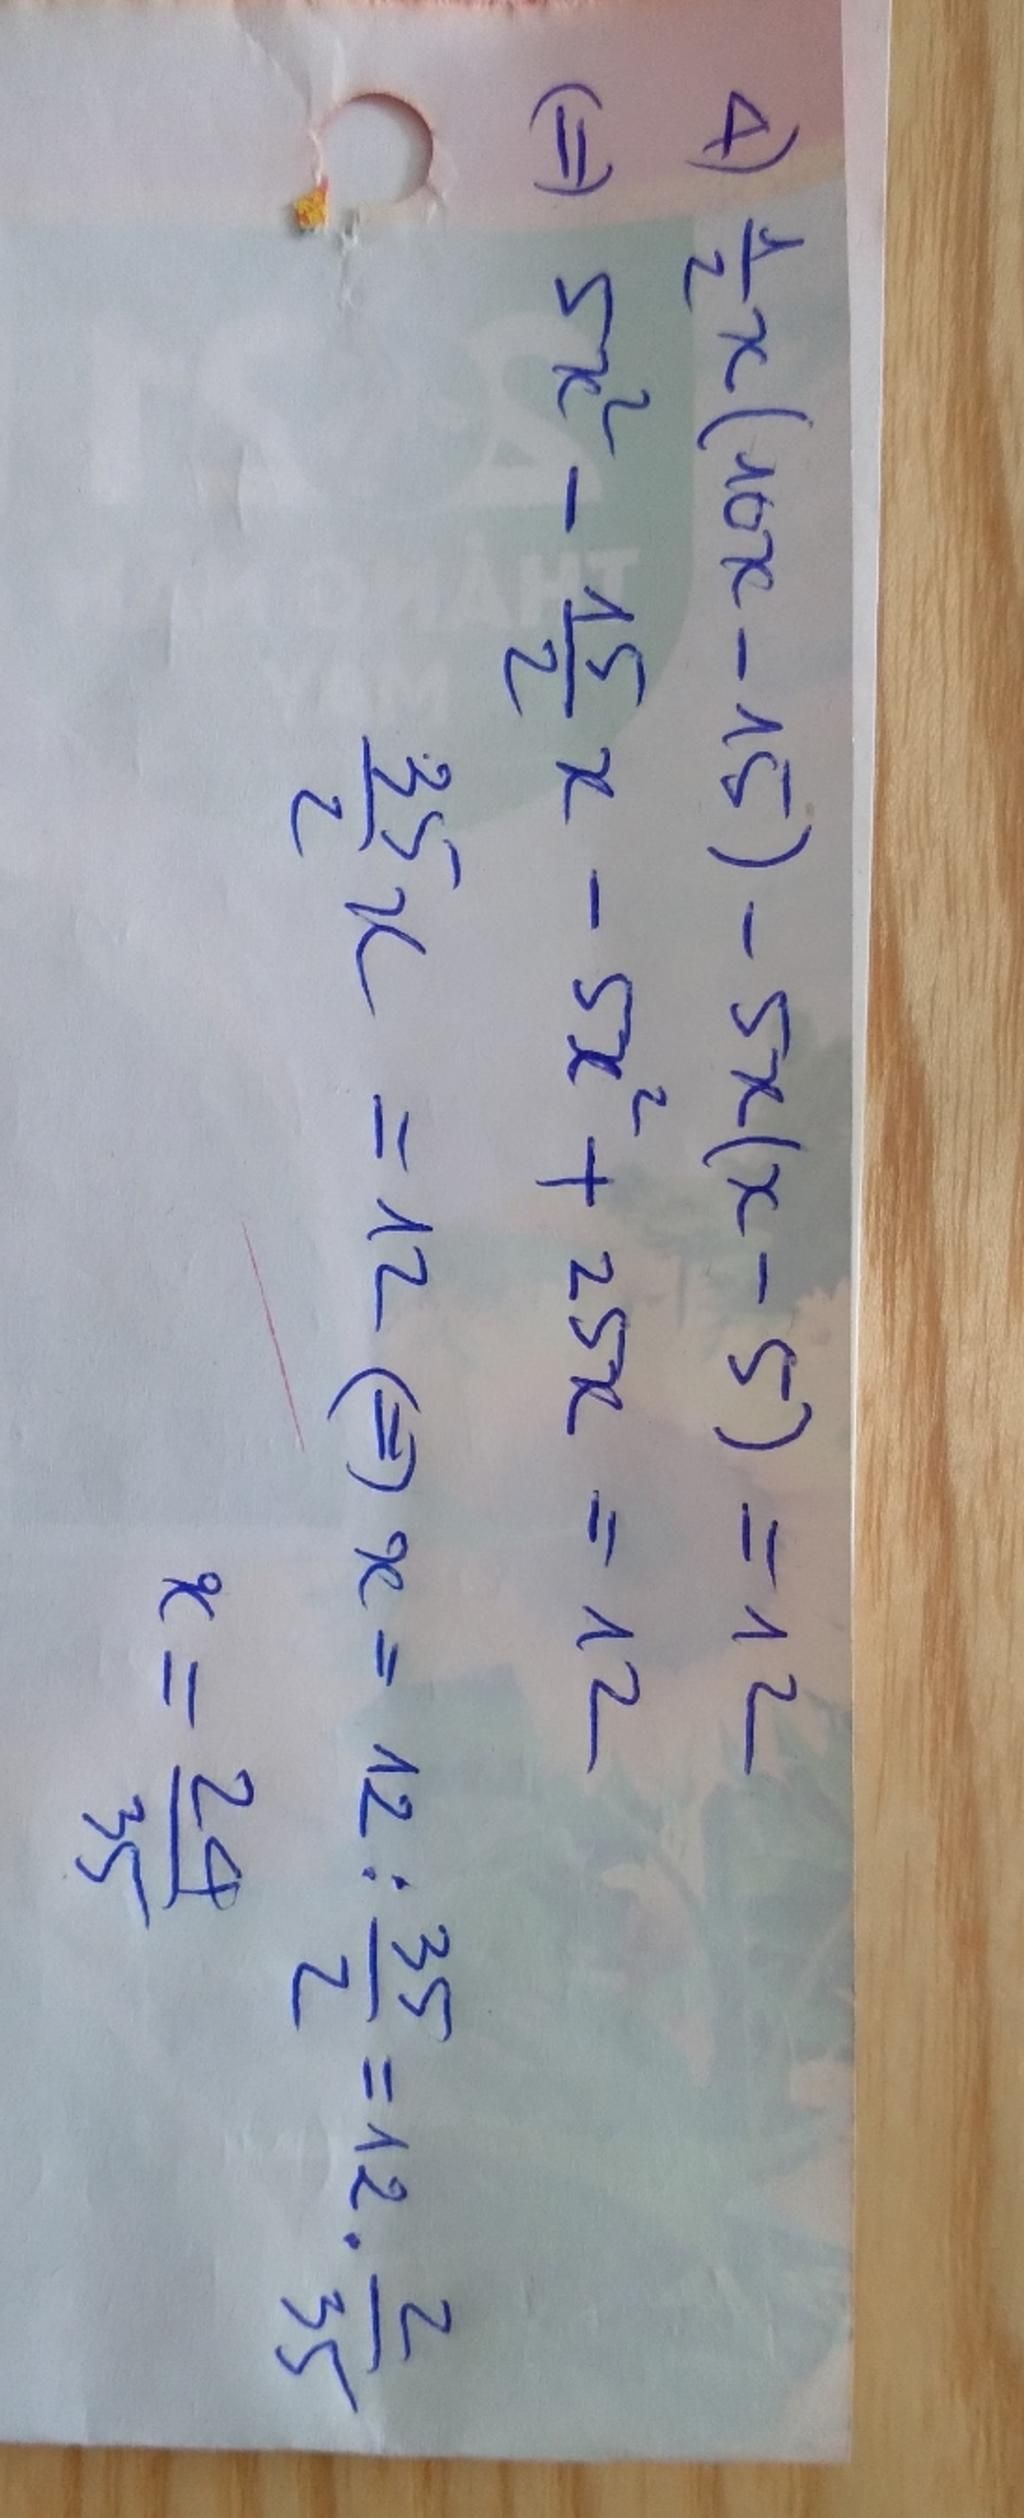 1) 1/2 x(10x - 15) - 5x(x - 5) = 12
(=) 5x² - 15/2 x - 5x² + 25x = 12
35/2 x = 12 (=) x = 12 : 35/2 = 12 . 2/35
x = 24/35
2 21
THÁNG
MAY